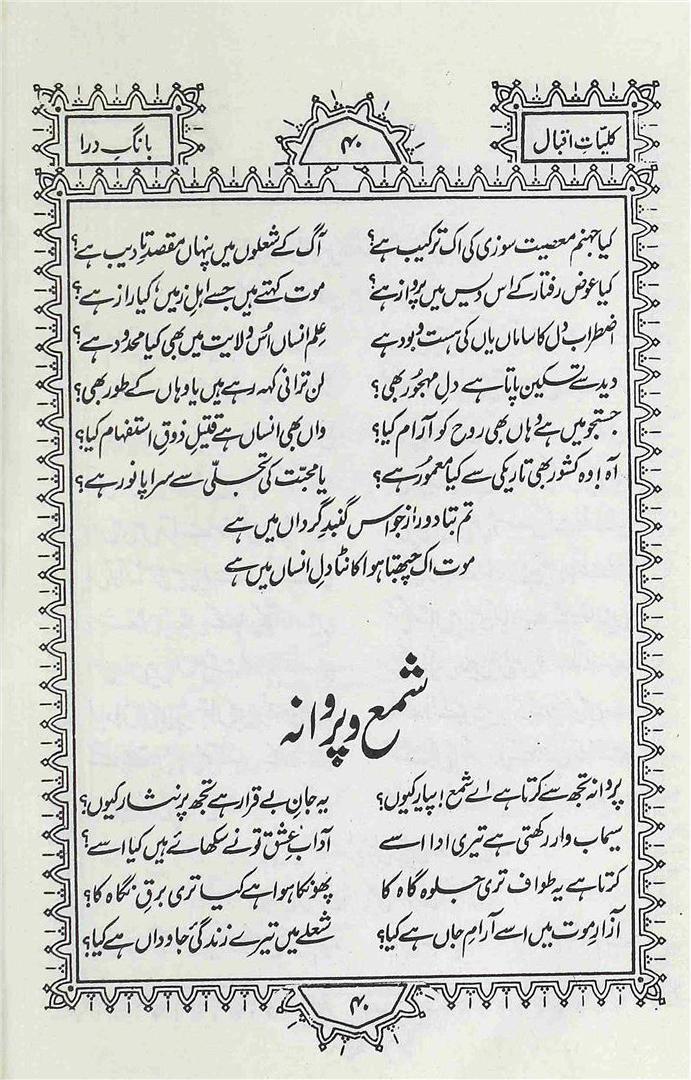 کلیاتِ اقبال
۴۰
بانگِ درا
کیا جہنم معصیت سوزی کی اک ترکیب ہے؟ آگ کے شعلوں میں پنہاں مقصدِ تادیب ہے؟
کیا عوض رفتار کے اس دیس میں پرواز ہے؟ موت کہتے ہیں جسے اہلِ زمیں، کیا راز ہے؟
اضطراب دل کا ساماں یاں کی ہست و بود ہے علمِ انساں اُس ولایت میں بھی کیا محدود ہے؟
دید سے تسکین پاتا ہے دلِ مہجور بھی؟ لن ترانی کہہ رہے ہیں یا وہاں کے طور بھی؟
جستجو میں ہے وہاں بھی روح کو آرام کیا؟ واں بھی انساں ہے قتیلِ ذوقِ استفہام کیا؟
آہ! وہ کشور بھی تاریکی سے کیا معمور ہے؟ یا محبّت کی تجلّی سے سراپا نور ہے؟
تم بتا دو راز جو اس گنبدِ گرداں میں ہے
موت اک چبھتا ہوا کانٹا دلِ انساں میں ہے
شمع و پروانہ
پروانہ تجھ سے کرتا ہے اے شمع! پیار کیوں؟ یہ جانِ بے قرار ہے تجھ پر نثار کیوں؟
سیماب وار رکھتی ہے تیری ادا اسے آدابِ عشق تو نے سکھائے ہیں کیا اسے؟
کرتا ہے یہ طواف تری جلوہ گاہ کا پھونکا ہوا ہے کیا تری برقِ نگاہ کا؟
آزارِ موت میں اسے آرامِ جاں ہے کیا؟ شعلے میں تیرے زندگیٔ جاوداں ہے کیا؟
۴۰